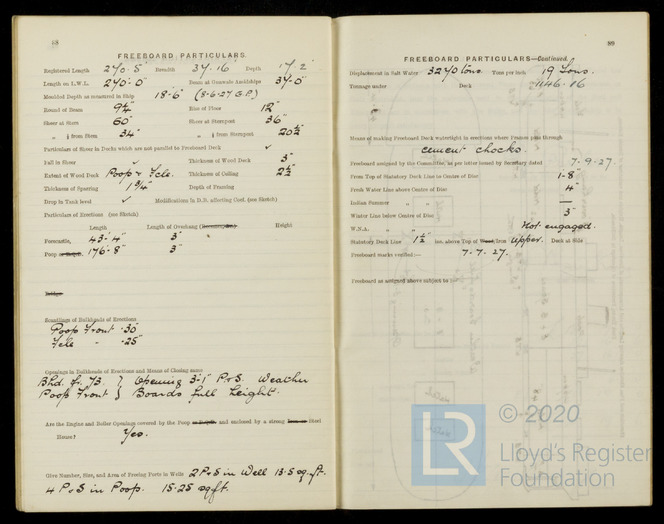 88
FREEBOARD PARTICULARS.
Registered Length 240·5' Breadth 37·16' Depth 17·2'
Length on L.W.L. 240'-0" Beam at Gunwale Amidships 37'-0"
Moulded Depth as measured in Ship 18'-6" (8-6-27 G.P.)
Round of Beam 9½" Rise of Floor 12"
Sheer at Stem 60" Sheer at Sternpost 36"
" ⅛ from Stem 34" " ⅛ from Sternpost 20½"
Particulars of Sheer in Decks which are not parallel to Freeboard Deck ✓
Fall in Sheer ✓ Thickness of Wood Deck 3"
Extent of Wood Deck Poop & Fcle. Thickness of Ceiling 2½"
Thickness of Sparring 1¾" Depth of Framing
Drop in Tank level ✓ Modifications in D.B. affecting Coef. (see Sketch)
Particulars of Erections (see Sketch)
Length Length of Overhang Height
Forecastle, 43'-4" 3" "
Poop 176'-8" 3"
Bridge
Scantlings of Bulkheads of Erections
Poop Front ·30"
Fcle " ·25"
Openings in Bulkheads of Erections and Means of Closing same
Bhd. Fr. 73 } Opening 3'-1" P&S. Weather
Poop Front } Boards full height.
Are the Engine and Boiler Openings covered by the Poop and enclosed by a strong Steel
House? Yes.
Give Number, Size, and Area of Freeing Ports in Wells 2 P&S in Well 13·5 sq.ft.
4 P&S in Poop. 15·25 sq.ft.
89
FREEBOARD PARTICULARS—Continued.
Displacement in Salt Water 3270 tons. Tons per inch 19 tons.
Tonnage under Deck 1146·16
Means of making Freeboard Deck watertight in erections where Frames pass through
cement chocks.
Freeboard assigned by the Committee, as per letter issued by Secretary dated 7-9-27.
From Top of Statutory Deck Line to Centre of Disc 1-8"
Fresh Water Line above Centre of Disc 4"
Indian Summer " " —
Winter Line below Centre of Disc 3"
W.N.A. " " Not engaged.
Statutory Deck Line 1½" ins. above Top of Wood/Iron Upper. Deck at Side
Freeboard Marks verified:— 7-7-27.
Freeboard as assigned above subject to:—
LR
© 2020
Lloyd's Register
Foundation